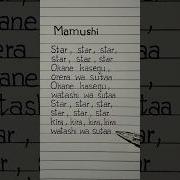 Mamushi
Star, star, star,
star, star, star
Okane kasegu,
orera wa sutaa
Okane kasegu,
watashi wa sutaa
Star, star, star,
star, star, star
Kira, kira, kira, kira
watashi wa sutaa